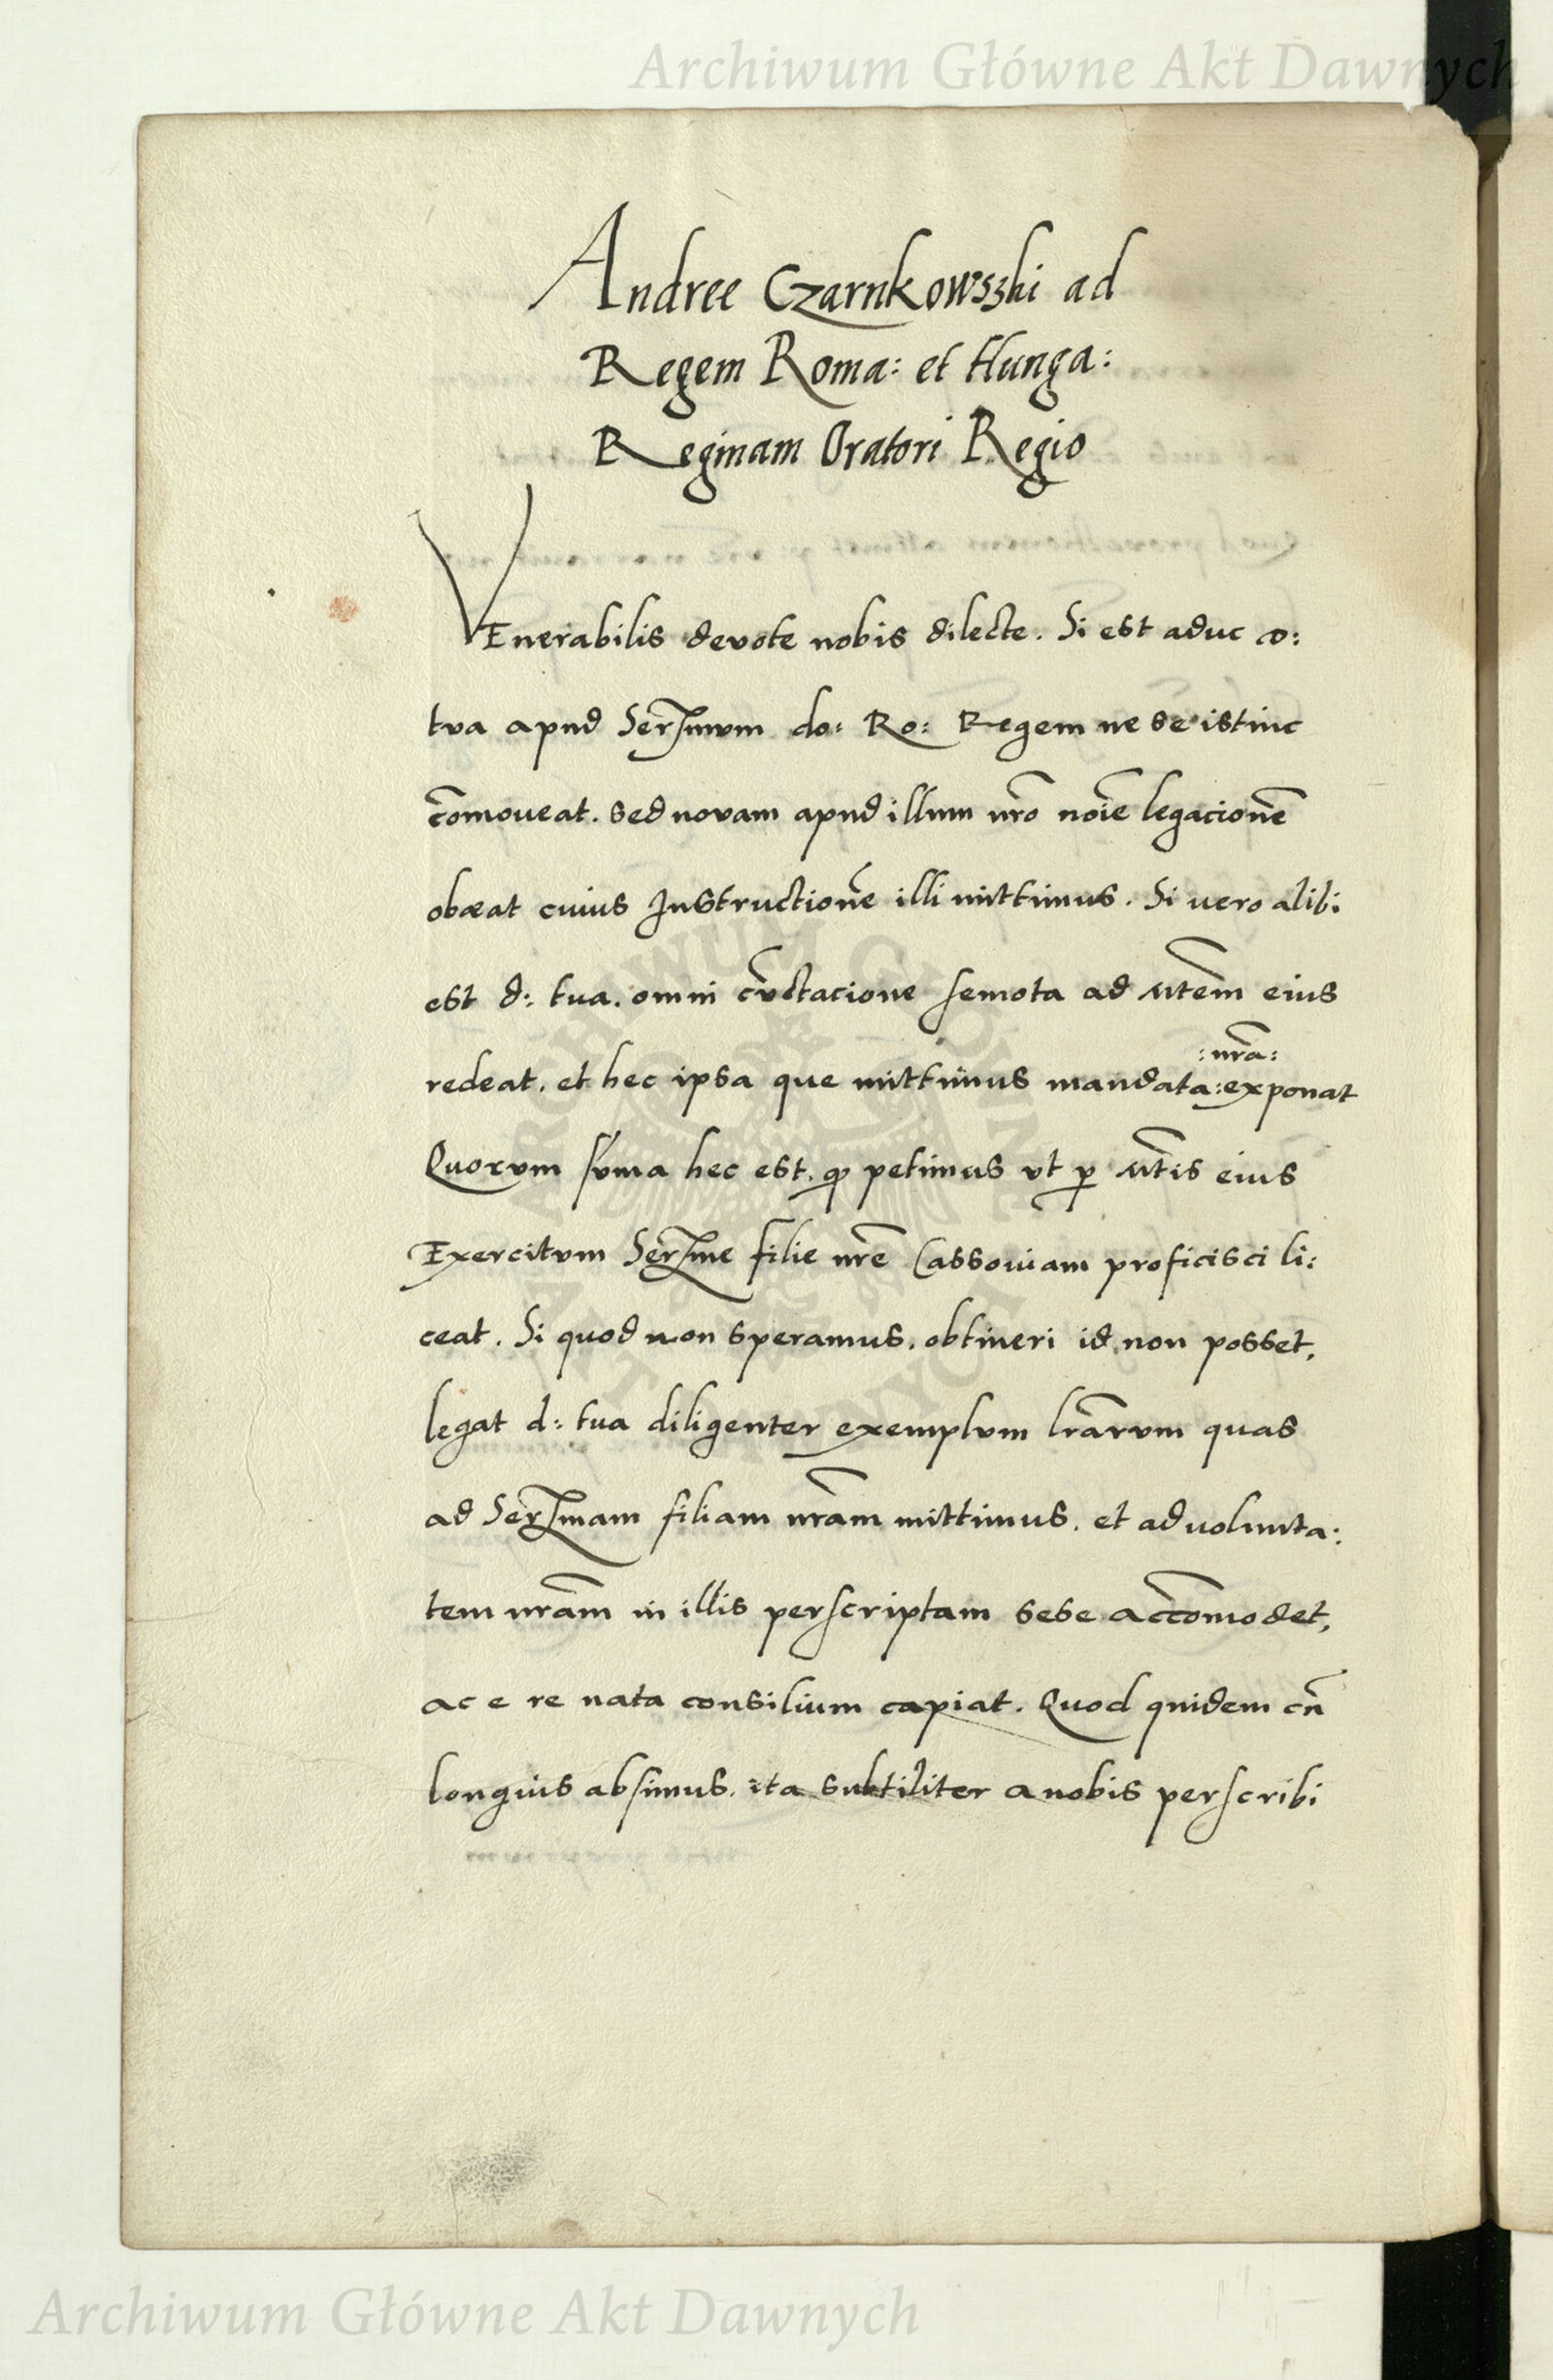 Archiwum Główne Akt Dawnych
Andree Czarnkowszki ad
Regem Roma: et Hunga:
Reginam Oratori Regio
VEnerabilis devote nobis dilecte. Si est aduc D:
tva apud Serᷤmvm do: Ro: Regem ne se istinc
cōmoveat. sed novam apud illum nr̄o noīe legacionē
obeat cuius Instructionē illi mittimus. Si vero alibi
est d: tua. omni cv̄ctacione semota ad Mtēm eius
redeat. et hec ipsa que mittimus mandata :nr̄a: exponat
Quorvm sv̄ma hec est. ꝙ petimus vt ꝑ Mt̄is eius
Exercitvm Serᷤme filie nr̄e Cassoviam proficisci li:
ceat. Si quod non speramus. obtineri id non posset,
legat d: tua diligenter exemplvm lr̄arvm quas
ad Serᷤmam filiam nr̄am mittimus. et ad volunta:
tem nr̄am in illis perscriptam sese accōmodet,
ac e re nata consilium capiat. Quod quidem cū
longius absimus. ita subtiliter a nobis perscribi
Archiwum Główne Akt Dawnych